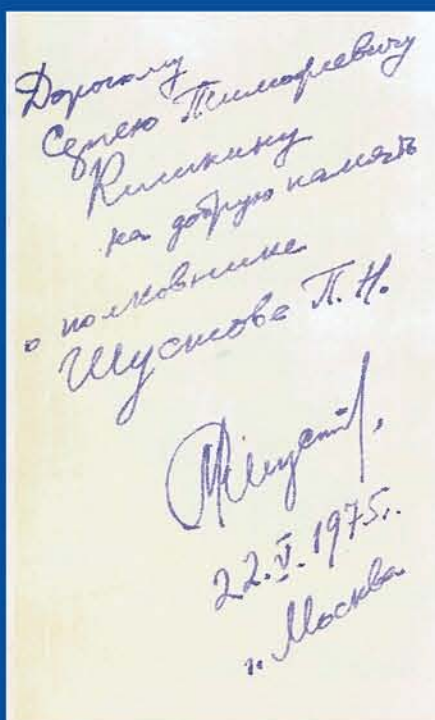 Дорогому
Сергею Тимофеевичу
Киликину
на добрую память
о полковнике
Шустове П. Н.
22.V.1975г.
г. Москва